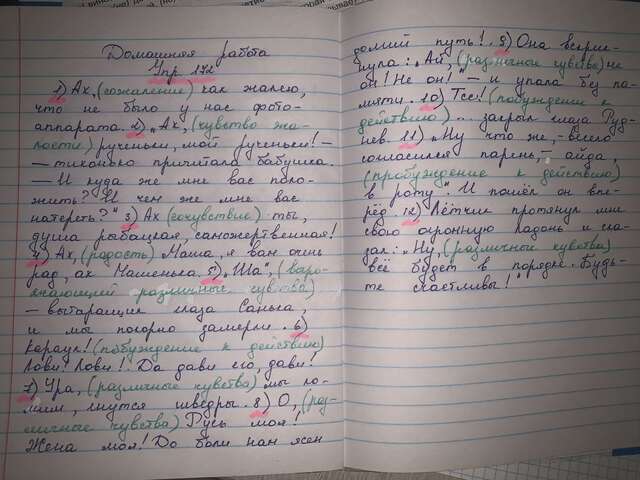 Домашняя работа
Упр. 172
1) Ах, (сожаление) как жалею,
что не было у нас фото-
аппарата. 2) „Ах, (чувство жа-
лости) рученьки, мои рученьки! –
– тихонько причитала бабушка.
– И куда же мне вас поло-
жить? И чем же мне вас
натереть?" 3) Ах (сочувствие) ты,
душа рыбацкая, саможертвенная!
4) Ах, (радость) Маша, я вам очень
рад, ах Машенька. 5) „Ша", (выра-
жающей различные чувства)
– вытаращил глаза Санька,
и мы покорно замерли. 6)
Караул! (побуждение к действию)
Лови! Лови! Да дави его, дави!
7) Ура, (различные чувства) мы ло-
мим, гнутся шведы. 8) О, (раз-
личные чувства) Русь моя!
Жена моя! До боли нам ясен
долгий путь! 9) Она вскрик-
нула: „Ай, (различные чувства) не
он! Не он!" – и упала без па-
мяти. 10) Тсс! (побуждение к
действию) ... закрыл глаза Руд-
нев. 11) „Ну что же, – весело
согласился парень, – айда,
(пробуждение к действию)
в роту". И пошёл он впе-
рёд. 12) Лётчик протянул мне
свою огромную ладонь и ска-
зал: „Ну, (различные чувства)
всё будет в порядке. Будь-
те счастливы!"